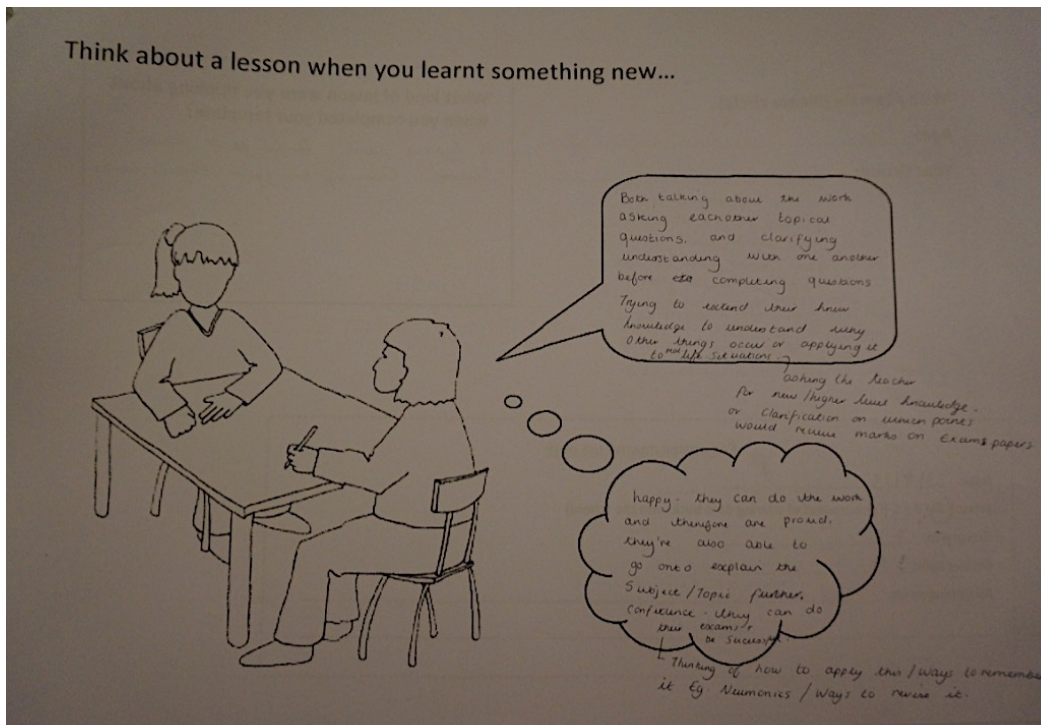 Think about a lesson when you learnt something new...
Both talking about the work
asking eachother topical
questions, and clarifying
understanding with one another
before completing questions
Trying to extend their
knowledge to understand why
other things occur or applying it
to real life situations.
asking the teacher
for new/higher level knowledge.
or clarification on which points
would receive marks on Exams papers
happy. they can do the work
and therefore are proud.
they're also able to
go onto explain the
Subject/Topic further.
Confidence. they can do
their exams +
be successful.
Thinking of how to apply this/ways to remember
it Eg Neumonics/ways to revise it.